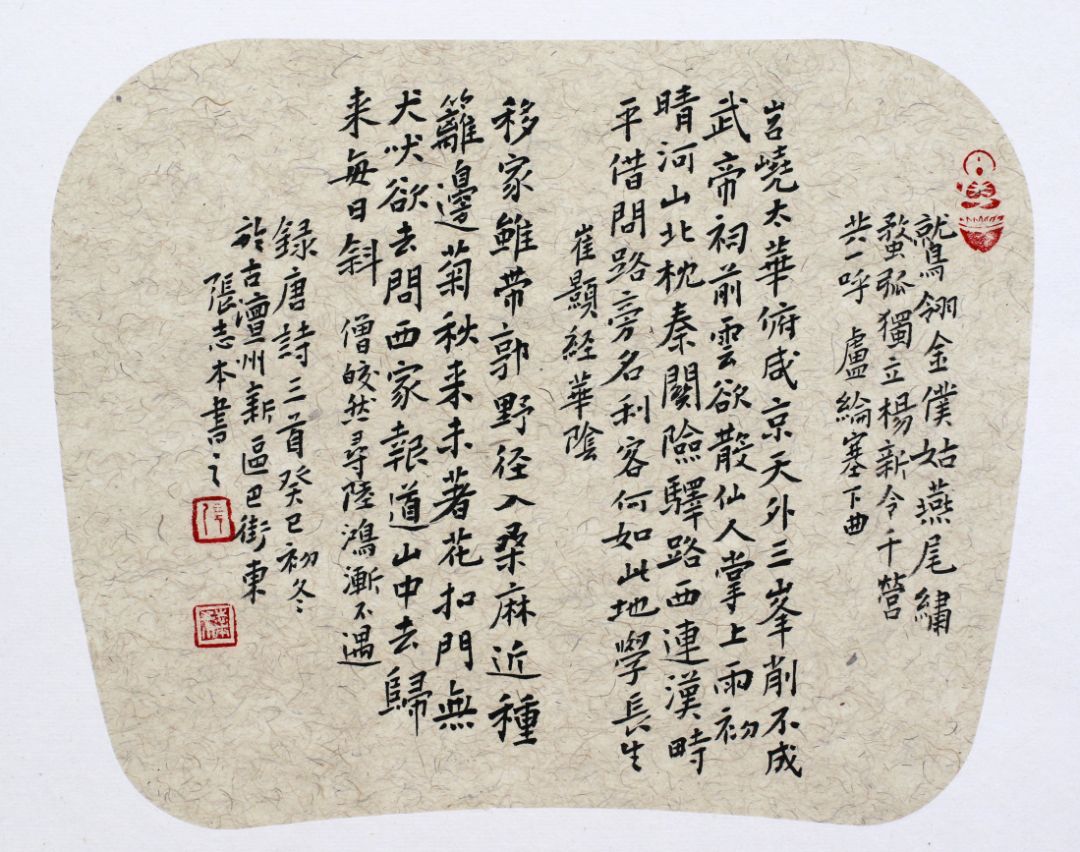 鷲翎金僕姑燕尾繡
蝥弧獨立楊新令千營
共一呼 盧綸塞下曲
岧嶢太華俯咸京天外三峯削不成
武帝祠前雲欲散仙人掌上雨初
晴河山北枕秦關險驛路西連漢畤
平借問路旁名利客何如此地學長生
崔顥經華陰
移家雖帶郭野径入桑麻近種
籬邊菊秋来未著花扣門無
犬吠欲去問西家報道山中去歸
来每日斜 僧皎然尋陸鴻漸不遇
録唐詩三首癸巳初冬
於古澶州新區巴街東
張志本書之